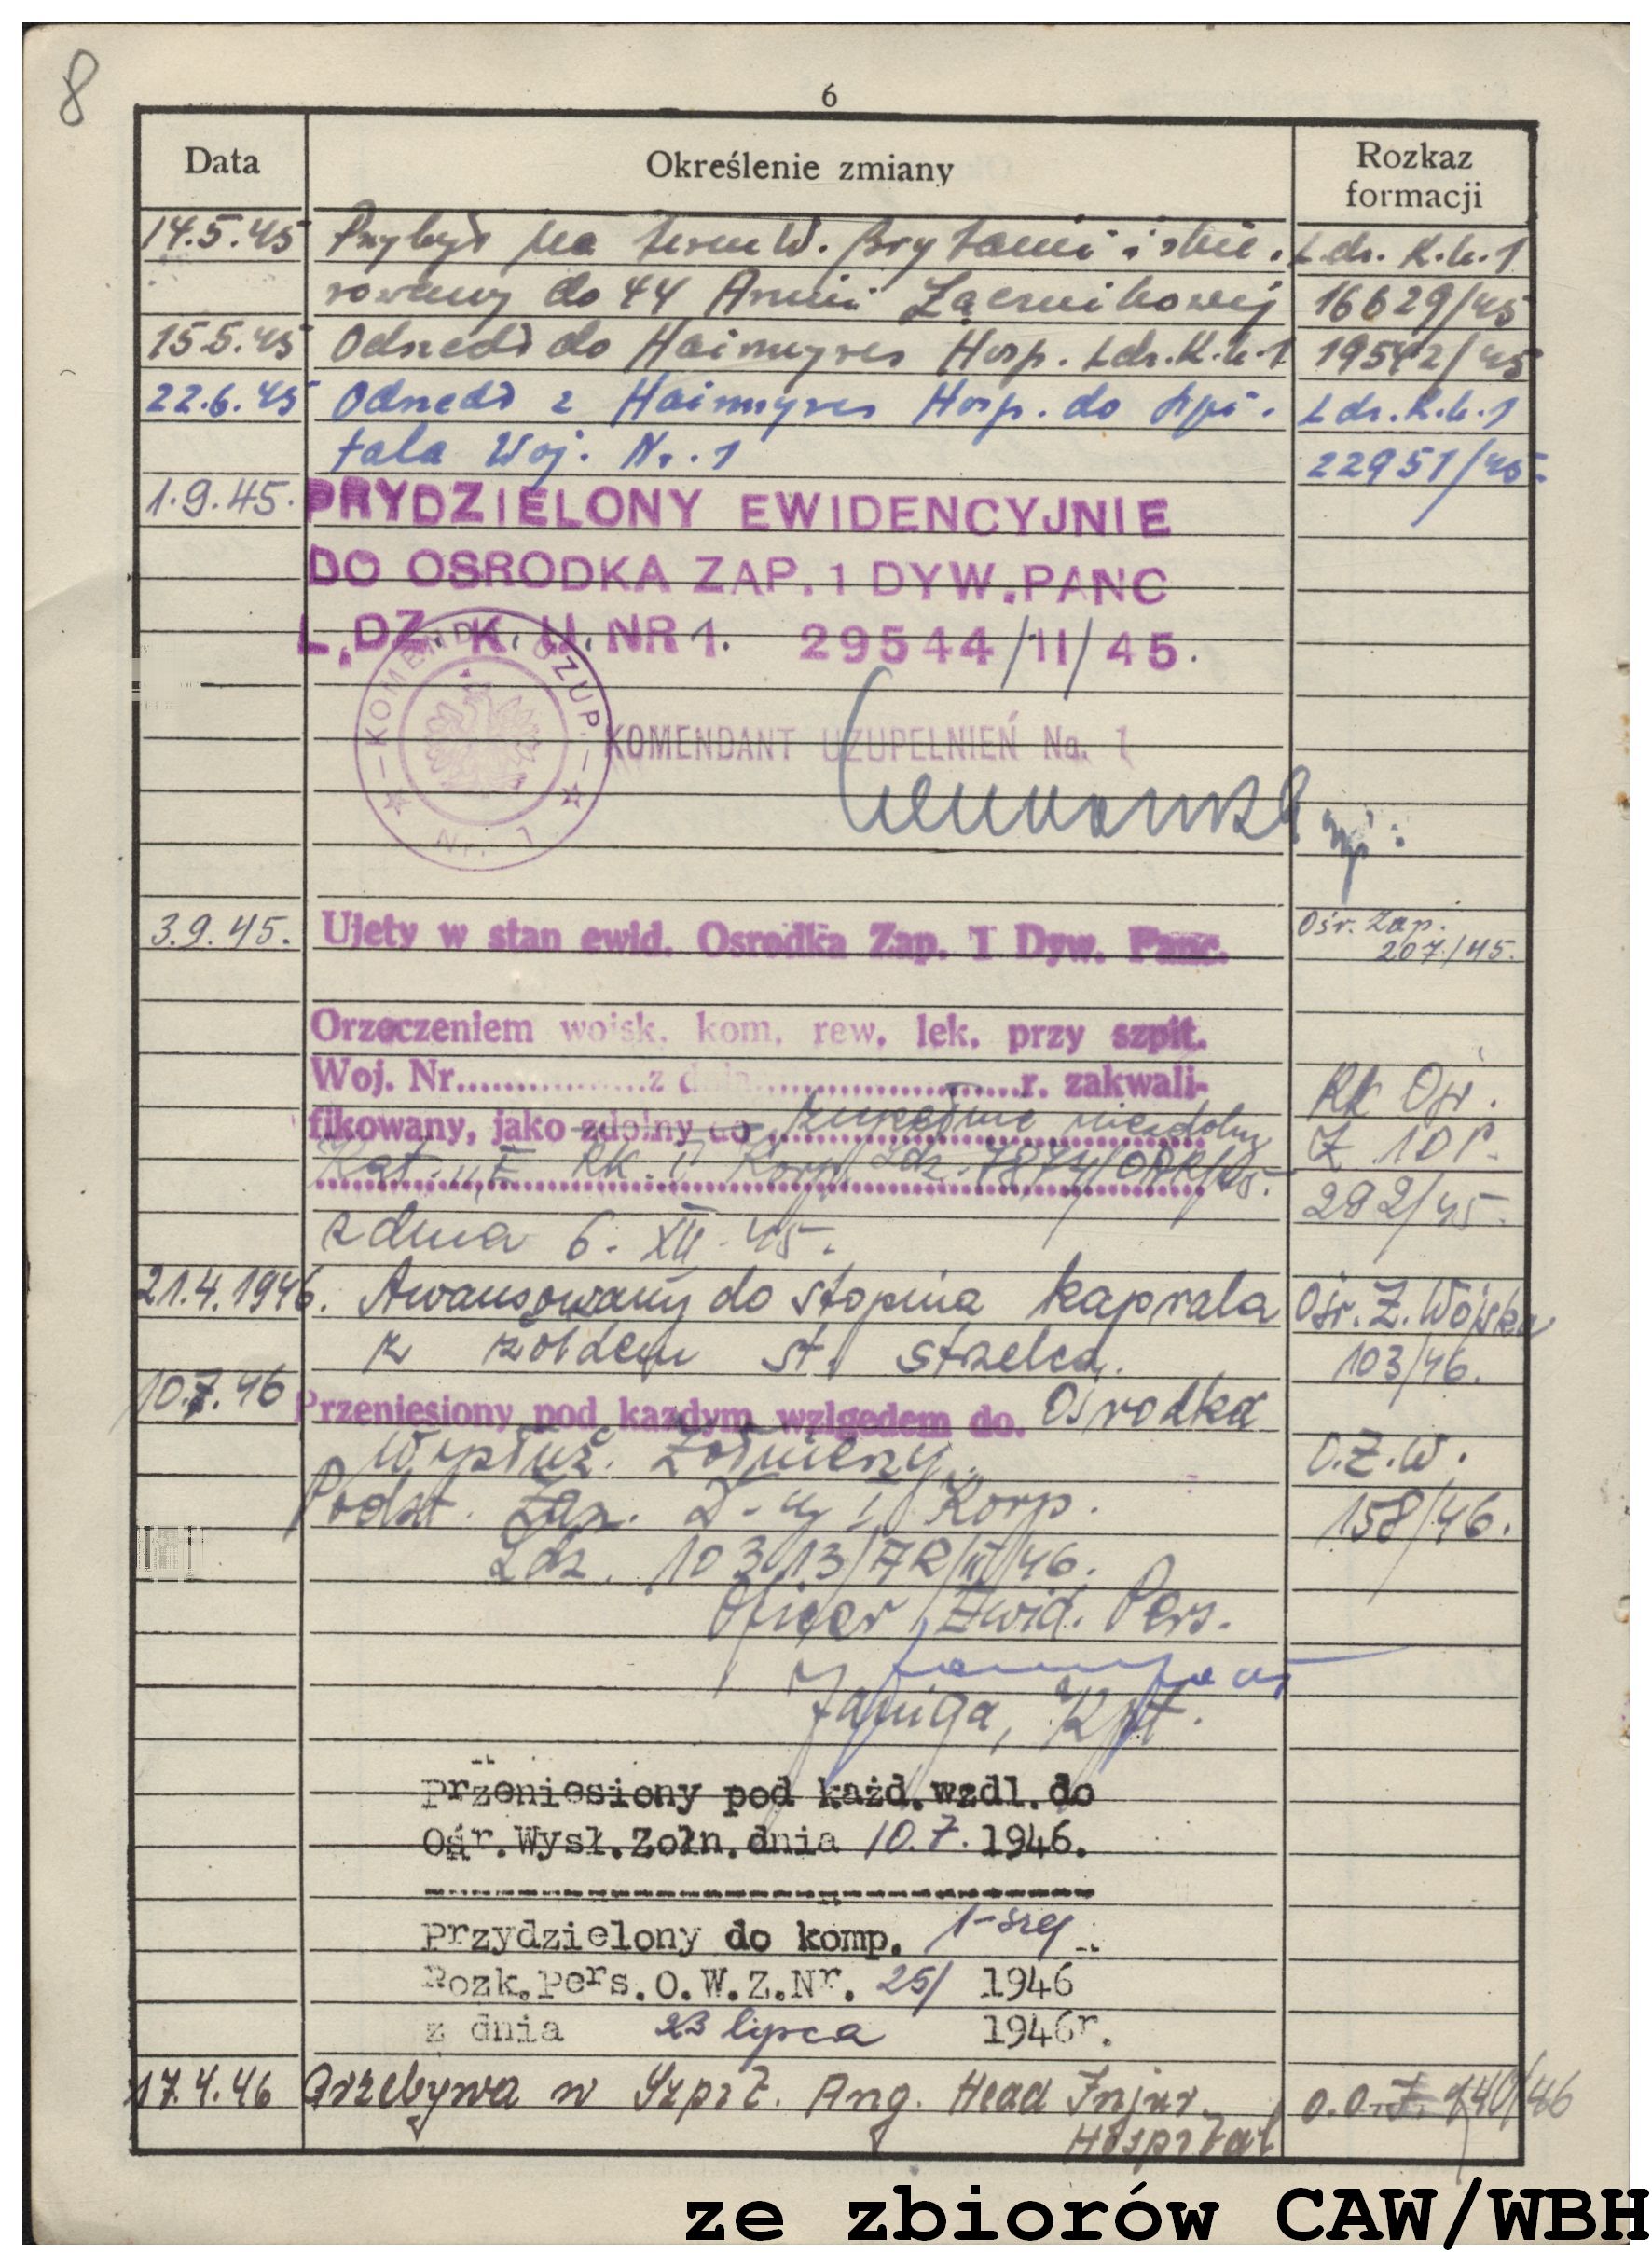 8
6
Data Określenie zmiany Rozkaz formacji
14.5.45 Przybył na teren W. Brytanii i skie- Ldz. K.U.1
rowany do 44 Armii Łącznikowej 16629/45
15.5.45 Odszedł do Hairmyres Hosp. Ldz.K.U.1 19542/45
22.6.45 Odszedł z Hairmyres Hosp. do Szpi- Ldz.K.U.1
tala Woj. Nr. 1 22951/45
1.9.45. PRYDZIELONY EWIDENCYJNIE
DO OSRODKA ZAP. 1 DYW. PANC
L.DZ. K. U. NR 1. 29544/II/45.
KOMENDA UZUP. Nr. 1
KOMENDANT UZUPEŁNIEŃ No. 1
3.9.45. Ujety w stan ewid. Osrodka Zap. 1 Dyw. Panc. Ośr. Zap.
207/45.
Orzeczeniem wojsk. kom. rew. lek. przy szpit.
Woj. Nr................z dnia........................r. zakwali- RK Ośr.
fikowany, jako zdolny do niezdolny Z 1DP.
Kat. "E" RK. I Korp. Ldz. 7874/OPR/45. 292/45.
z dnia 6. XII. 45.
21.4.1946. Awansowany do stopnia kaprala Ośr. Z. Wojska
z żołdem st. strzelca. 103/46.
10.7.46 Przeniesiony pod kazdym wzlgedem do. Ośrodka
Wysłuż. Żołnierzy. O.Z.W.
Podst. Zarz. D-wy I Korp. 158/46.
Ldz. 10313/AR/III/46.
Oficer Ewid. Pers.
Janiga, Kpt.
Przeniesiony pod każd.wzdl.do
Ośr.Wysł.Zołn.dnia 10.7.1946.
Przydzielony do komp. 1-szej
Rozk.Pers.O.W.Z.Nr. 25/ 1946
z dnia 23 lipca 1946r.
17.4.46 Przebywa w Szpit. Ang. Head Injur. O.O.Z. 140/46
Hospital
ze zbiorów CAW/WBH